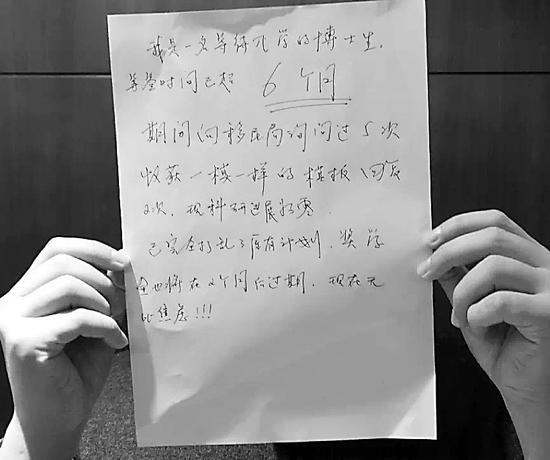 我是一名等待开学的博士生,
等签时间已超 6个月
期间向移民局询问过5次
收获一模一样的模板回复
2次. 现科研进展归零.
已完全打乱了原有计划, 奖学
金也将在2个月后过期. 现在无
比焦虑!!!